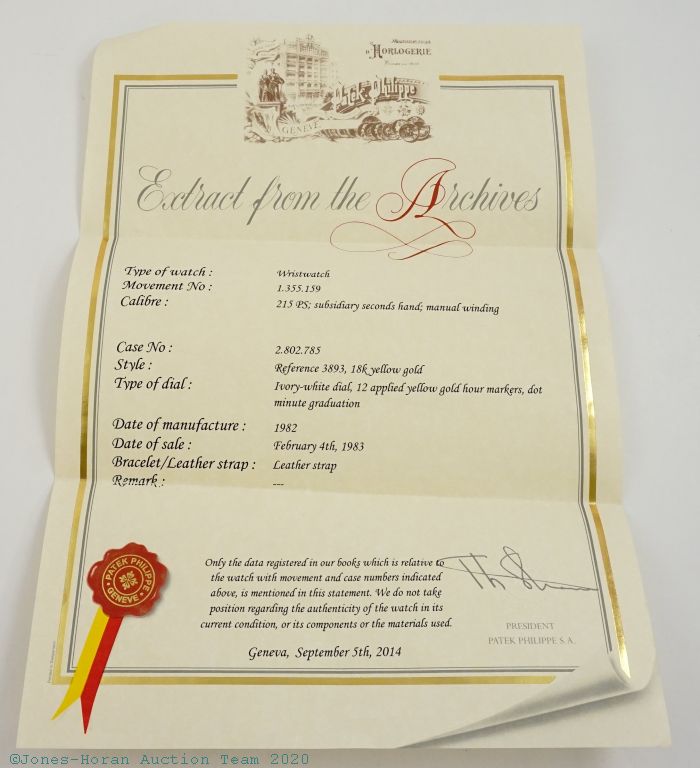 D'HORLOGERIE
Patek Philippe
GENÈVE
Extract from the Archives
Type of watch : Wristwatch
Movement No : 1.355.159
Calibre : 215 PS; subsidiary seconds hand; manual winding
Case No : 2.802.785
Style : Reference 3893, 18k yellow gold
Type of dial : Ivory-white dial, 12 applied yellow gold hour markers, dot
minute graduation
Date of manufacture : 1982
Date of sale : February 4th, 1983
Bracelet/Leather strap : Leather strap
Remark : ---
Only the data registered in our books which is relative to
the watch with movement and case numbers indicated
above, is mentioned in this statement. We do not take
position regarding the authenticity of the watch in its
current condition, or its components or the materials used.
PATEK PHILIPPE
GENEVE
PRESIDENT
PATEK PHILIPPE S.A.
Geneva, September 5th, 2014
©Jones-Horan Auction Team 2020